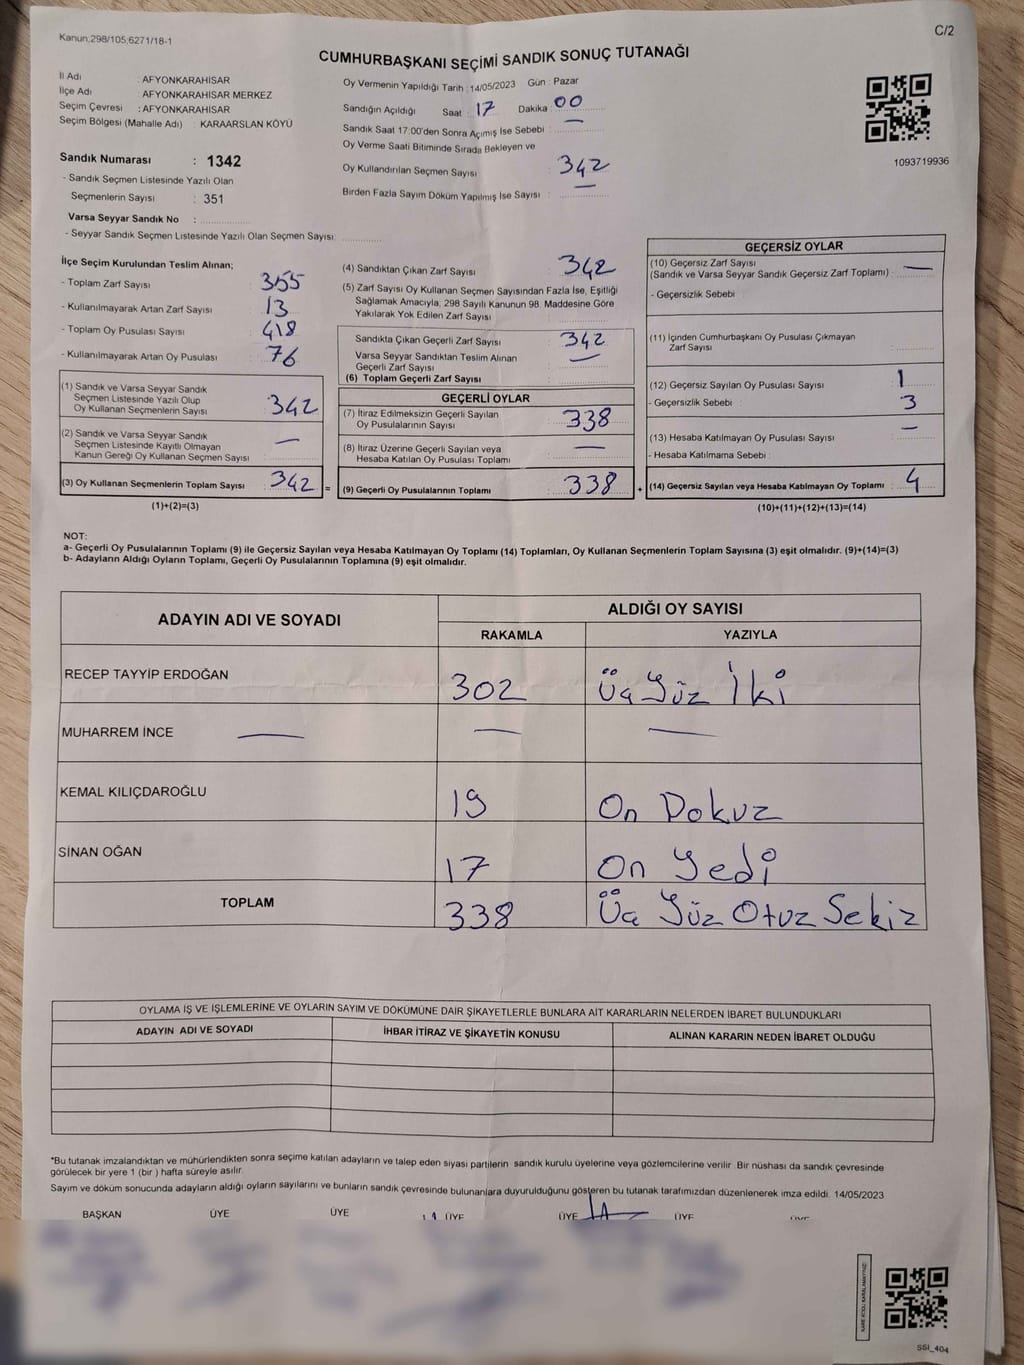 Kanun;298/105;6271/18-1
C/2
CUMHURBAŞKANI SEÇİMİ SANDIK SONUÇ TUTANAĞI
İl Adı : AFYONKARAHİSAR
İlçe Adı : AFYONKARAHİSAR MERKEZ
Seçim Çevresi : AFYONKARAHİSAR
Seçim Bölgesi (Mahalle Adı) : KARAARSLAN KÖYÜ
Sandık Numarası : 1342
- Sandık Seçmen Listesinde Yazılı Olan
Seçmenlerin Sayısı : 351
Varsa Seyyar Sandık No :
- Seyyar Sandık Seçmen Listesinde Yazılı Olan Seçmen Sayısı:
Oy Vermenin Yapıldığı Tarih : 14/05/2023 Gün : Pazar
Sandığın Açıldığı Saat : 17 Dakika : 00
Sandık Saat 17:00'den Sonra Açımış İse Sebebi : —
Oy Verme Saati Bitiminde Sırada Bekleyen ve
Oy Kullandırılan Seçmen Sayısı : 342
Birden Fazla Sayım Döküm Yapılmış İse Sayısı : —
1093719936
İlçe Seçim Kurulundan Teslim Alınan;
- Toplam Zarf Sayısı : 355
- Kullanılmayarak Artan Zarf Sayısı : 13
- Toplam Oy Pusulası Sayısı : 418
- Kullanılmayarak Artan Oy Pusulası : 76
(1) Sandık ve Varsa Seyyar Sandık
Seçmen Listesinde Yazılı Olup
Oy Kullanan Seçmenlerin Sayısı : 342
(2) Sandık ve Varsa Seyyar Sandık
Seçmen Listesinde Kayıtlı Olmayan
Kanun Gereği Oy Kullanan Seçmen Sayısı : —
(3) Oy Kullanan Seçmenlerin Toplam Sayısı : 342 =
(1)+(2)=(3)
(4) Sandıktan Çıkan Zarf Sayısı : 342
(5) Zarf Sayısı Oy Kullanan Seçmen Sayısından Fazla İse, Eşitliği
Sağlamak Amacıyla, 298 Sayılı Kanunun 98. Maddesine Göre
Yakılarak Yok Edilen Zarf Sayısı :
Sandıkta Çıkan Geçerli Zarf Sayısı : 342
Varsa Seyyar Sandıktan Teslim Alınan
Geçerli Zarf Sayısı : —
(6) Toplam Geçerli Zarf Sayısı :
GEÇERLİ OYLAR
(7) İtiraz Edilmeksizin Geçerli Sayılan
Oy Pusulalarının Sayısı : 338
(8) İtiraz Üzerine Geçerli Sayılan veya
Hesaba Katılan Oy Pusulası Toplamı : —
(9) Geçerli Oy Pusulalarının Toplamı : 338 +
GEÇERSİZ OYLAR
(10) Geçersiz Zarf Sayısı
(Sandık ve Varsa Seyyar Sandık Geçersiz Zarf Toplamı) : —
- Geçersizlik Sebebi :
(11) İçinden Cumhurbaşkanı Oy Pusulası Çıkmayan
Zarf Sayısı :
(12) Geçersiz Sayılan Oy Pusulası Sayısı : 1
- Geçersizlik Sebebi : 3
(13) Hesaba Katılmayan Oy Pusulası Sayısı : —
- Hesaba Katılmama Sebebi :
(14) Geçersiz Sayılan veya Hesaba Katılmayan Oy Toplamı : 4
(10)+(11)+(12)+(13)=(14)
NOT:
a- Geçerli Oy Pusulalarının Toplamı (9) ile Geçersiz Sayılan veya Hesaba Katılmayan Oy Toplamı (14) Toplamları, Oy Kullanan Seçmenlerin Toplam Sayısına (3) eşit olmalıdır. (9)+(14)=(3)
b- Adayların Aldığı Oyların Toplamı, Geçerli Oy Pusulalarının Toplamına (9) eşit olmalıdır.
ADAYIN ADI VE SOYADI ALDIĞI OY SAYISI
RAKAMLA YAZIYLA
RECEP TAYYİP ERDOĞAN 302 Üç Yüz İki
MUHARREM İNCE — — —
KEMAL KILIÇDAROĞLU 19 On Dokuz
SİNAN OĞAN 17 On Yedi
TOPLAM 338 Üç Yüz Otuz Sekiz
OYLAMA İŞ VE İŞLEMLERİNE VE OYLARIN SAYIM VE DÖKÜMÜNE DAİR ŞİKAYETLERLE BUNLARA AİT KARARLARIN NELERDEN İBARET BULUNDUKLARI
ADAYIN ADI VE SOYADI İHBAR İTİRAZ VE ŞİKAYETİN KONUSU ALINAN KARARIN NEDEN İBARET OLDUĞU
*Bu tutanak imzalandıktan ve mühürlendikten sonra seçime katılan adayların ve talep eden siyasi partilerin sandık kurulu üyelerine veya gözlemcilerine verilir. Bir nüshası da sandık çevresinde
görülecek bir yere 1 (bir ) hafta süreyle asılır.
Sayım ve döküm sonucunda adayların aldığı oyların sayılarını ve bunların sandık çevresinde bulunanlara duyurulduğunu gösteren bu tutanak tarafımızdan düzenlenerek imza edildi. 14/05/2023
BAŞKAN ÜYE ÜYE ÜYE ÜYE ÜYE ÜYE
KARE KODU KARALAMAYINIZ!
SSI_404